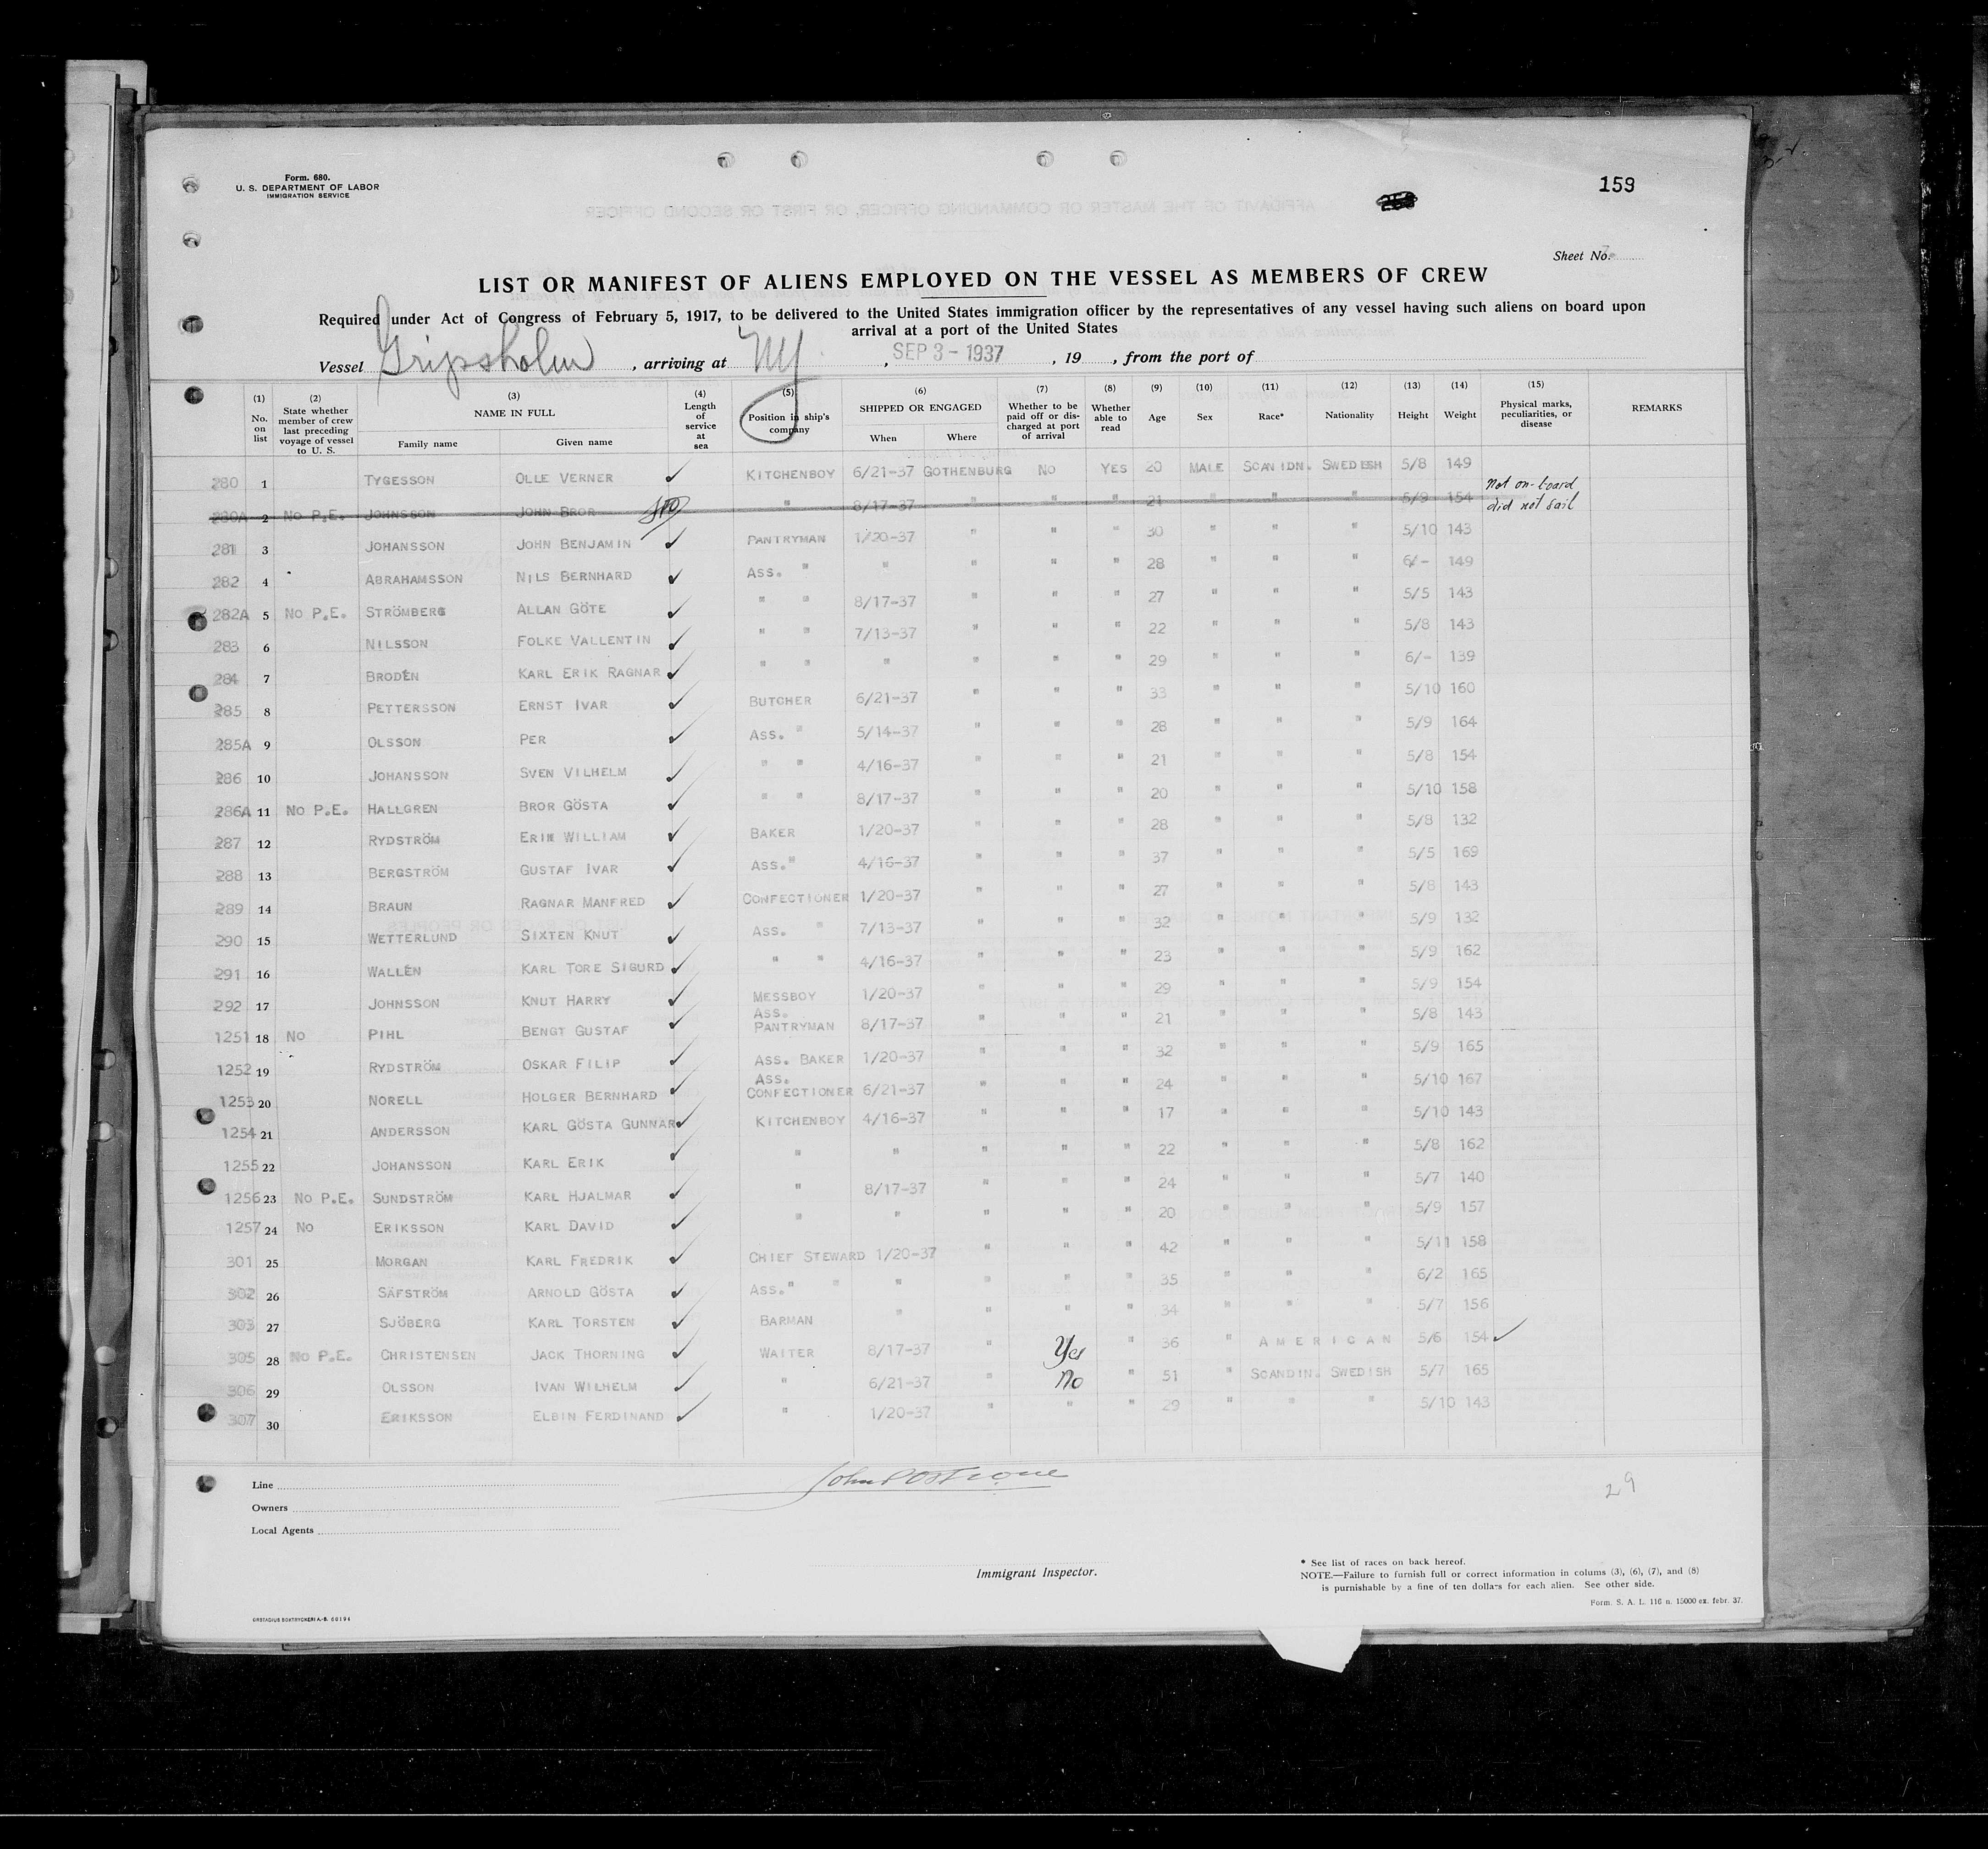 Form. 680.
U. S. DEPARTMENT OF LABOR
IMMIGRATION SERVICE
159
Sheet No. 7
LIST OR MANIFEST OF ALIENS EMPLOYED ON THE VESSEL AS MEMBERS OF CREW
Required under Act of Congress of February 5, 1917, to be delivered to the United States immigration officer by the representatives of any vessel having such aliens on board upon
arrival at a port of the United States
Vessel Gripsholm, arriving at NY, SEP 3 - 1937, 19, from the port of
(1) No. on list (2) State whether member of crew last preceding voyage of vessel to U. S. (3) NAME IN FULL Family name Given name (4) Length of service at sea (5) Position in ship's company (6) SHIPPED OR ENGAGED When Where (7) Whether to be paid off or discharged at port of arrival (8) Whether able to read (9) Age (10) Sex (11) Race* (12) Nationality (13) Height (14) Weight (15) Physical marks, peculiarities, or disease REMARKS
280 1 TYGESSON OLLE VERNER ✓ KITCHENBOY 6/21-37 GOTHENBURG NO YES 20 MALE SCANIDN. SWEDISH 5/8 149
280A 2 NO P.E. JOHNSSON JOHN BROR " 8/17-37 " " " 21 " " " 5/9 154 Not on-board did not sail
281 3 JOHANSSON JOHN BENJAMIN ✓ PANTRYMAN 1/20-37 " " " 30 " " " 5/10 143
282 4 ABRAHAMSSON NILS BERNHARD ✓ ASS. " " " " " 28 " " " 6/- 149
282A 5 NO P.E. STRÖMBERG ALLAN GÖTE ✓ " " 8/17-37 " " " 27 " " " 5/5 143
283 6 NILSSON FOLKE VALLENTIN ✓ " " 7/13-37 " " " 22 " " " 5/8 143
284 7 BRODÉN KARL ERIK RAGNAR ✓ " " " " " " 29 " " " 6/- 139
285 8 PETTERSSON ERNST IVAR ✓ BUTCHER 6/21-37 " " " 33 " " " 5/10 160
285A 9 OLSSON PER ✓ ASS. " 5/14-37 " " " 28 " " " 5/9 164
286 10 JOHANSSON SVEN VILHELM ✓ " " 4/16-37 " " " 21 " " " 5/8 154
286A 11 NO P.E. HALLGREN BROR GÖSTA ✓ " " 8/17-37 " " " 20 " " " 5/10 158
287 12 RYDSTRÖM ERIK WILLIAM ✓ BAKER 1/20-37 " " " 28 " " " 5/8 132
288 13 BERGSTRÖM GUSTAF IVAR ✓ ASS. " 4/16-37 " " " 37 " " " 5/5 169
289 14 BRAUN RAGNAR MANFRED ✓ CONFECTIONER 1/20-37 " " " 27 " " " 5/8 143
290 15 WETTERLUND SIXTEN KNUT ✓ ASS. " 7/13-37 " " " 32 " " " 5/9 132
291 16 WALLÉN KARL TORE SIGURD ✓ " " 4/16-37 " " " 23 " " " 5/9 162
292 17 JOHNSSON KNUT HARRY ✓ MESSBOY 1/20-37 " " " 29 " " " 5/9 154
1251 18 NO PIHL BENGT GUSTAF ✓ ASS. PANTRYMAN 8/17-37 " " " 21 " " " 5/8 143
1252 19 RYDSTRÖM OSKAR FILIP ✓ ASS. BAKER 1/20-37 " " " 32 " " " 5/9 165
1253 20 NORELL HOLGER BERNHARD ✓ ASS. CONFECTIONER 6/21-37 " " " 24 " " " 5/10 167
1254 21 ANDERSSON KARL GÖSTA GUNNAR ✓ KITCHENBOY 4/16-37 " " " 17 " " " 5/10 143
1255 22 JOHANSSON KARL ERIK ✓ " " " " " 22 " " " 5/8 162
1256 23 NO P.E. SUNDSTRÖM KARL HJALMAR ✓ " 8/17-37 " " " 24 " " " 5/7 140
1257 24 NO ERIKSSON KARL DAVID ✓ " " " " " 20 " " " 5/9 157
301 25 MORGAN KARL FREDRIK ✓ CHIEF STEWARD 1/20-37 " " " 42 " " " 5/11 158
302 26 SÄFSTRÖM ARNOLD GÖSTA ✓ ASS. " " " " " " 35 " " " 6/2 165
303 27 SJÖBERG KARL TORSTEN ✓ BARMAN " " " " 34 " " " 5/7 156
305 28 NO P.E. CHRISTENSEN JACK THORNING ✓ WAITER 8/17-37 " Yes " 36 " AMERICAN 5/6 154 ✓
306 29 OLSSON IVAN WILHELM ✓ " 6/21-37 " No " 51 " SCANDIN. SWEDISH 5/7 165
307 30 ERIKSSON ELBIN FERDINAND ✓ " 1/20-37 " " " 29 " " " 5/10 143
Line
Owners
Local Agents
29
Immigrant Inspector.
* See list of races on back hereof.
NOTE.—Failure to furnish full or correct information in colums (3), (6), (7), and (8)
is purnishable by a fine of ten dollars for each alien. See other side.
Form. S. A. L. 116 n. 15000 ex. febr. 37.